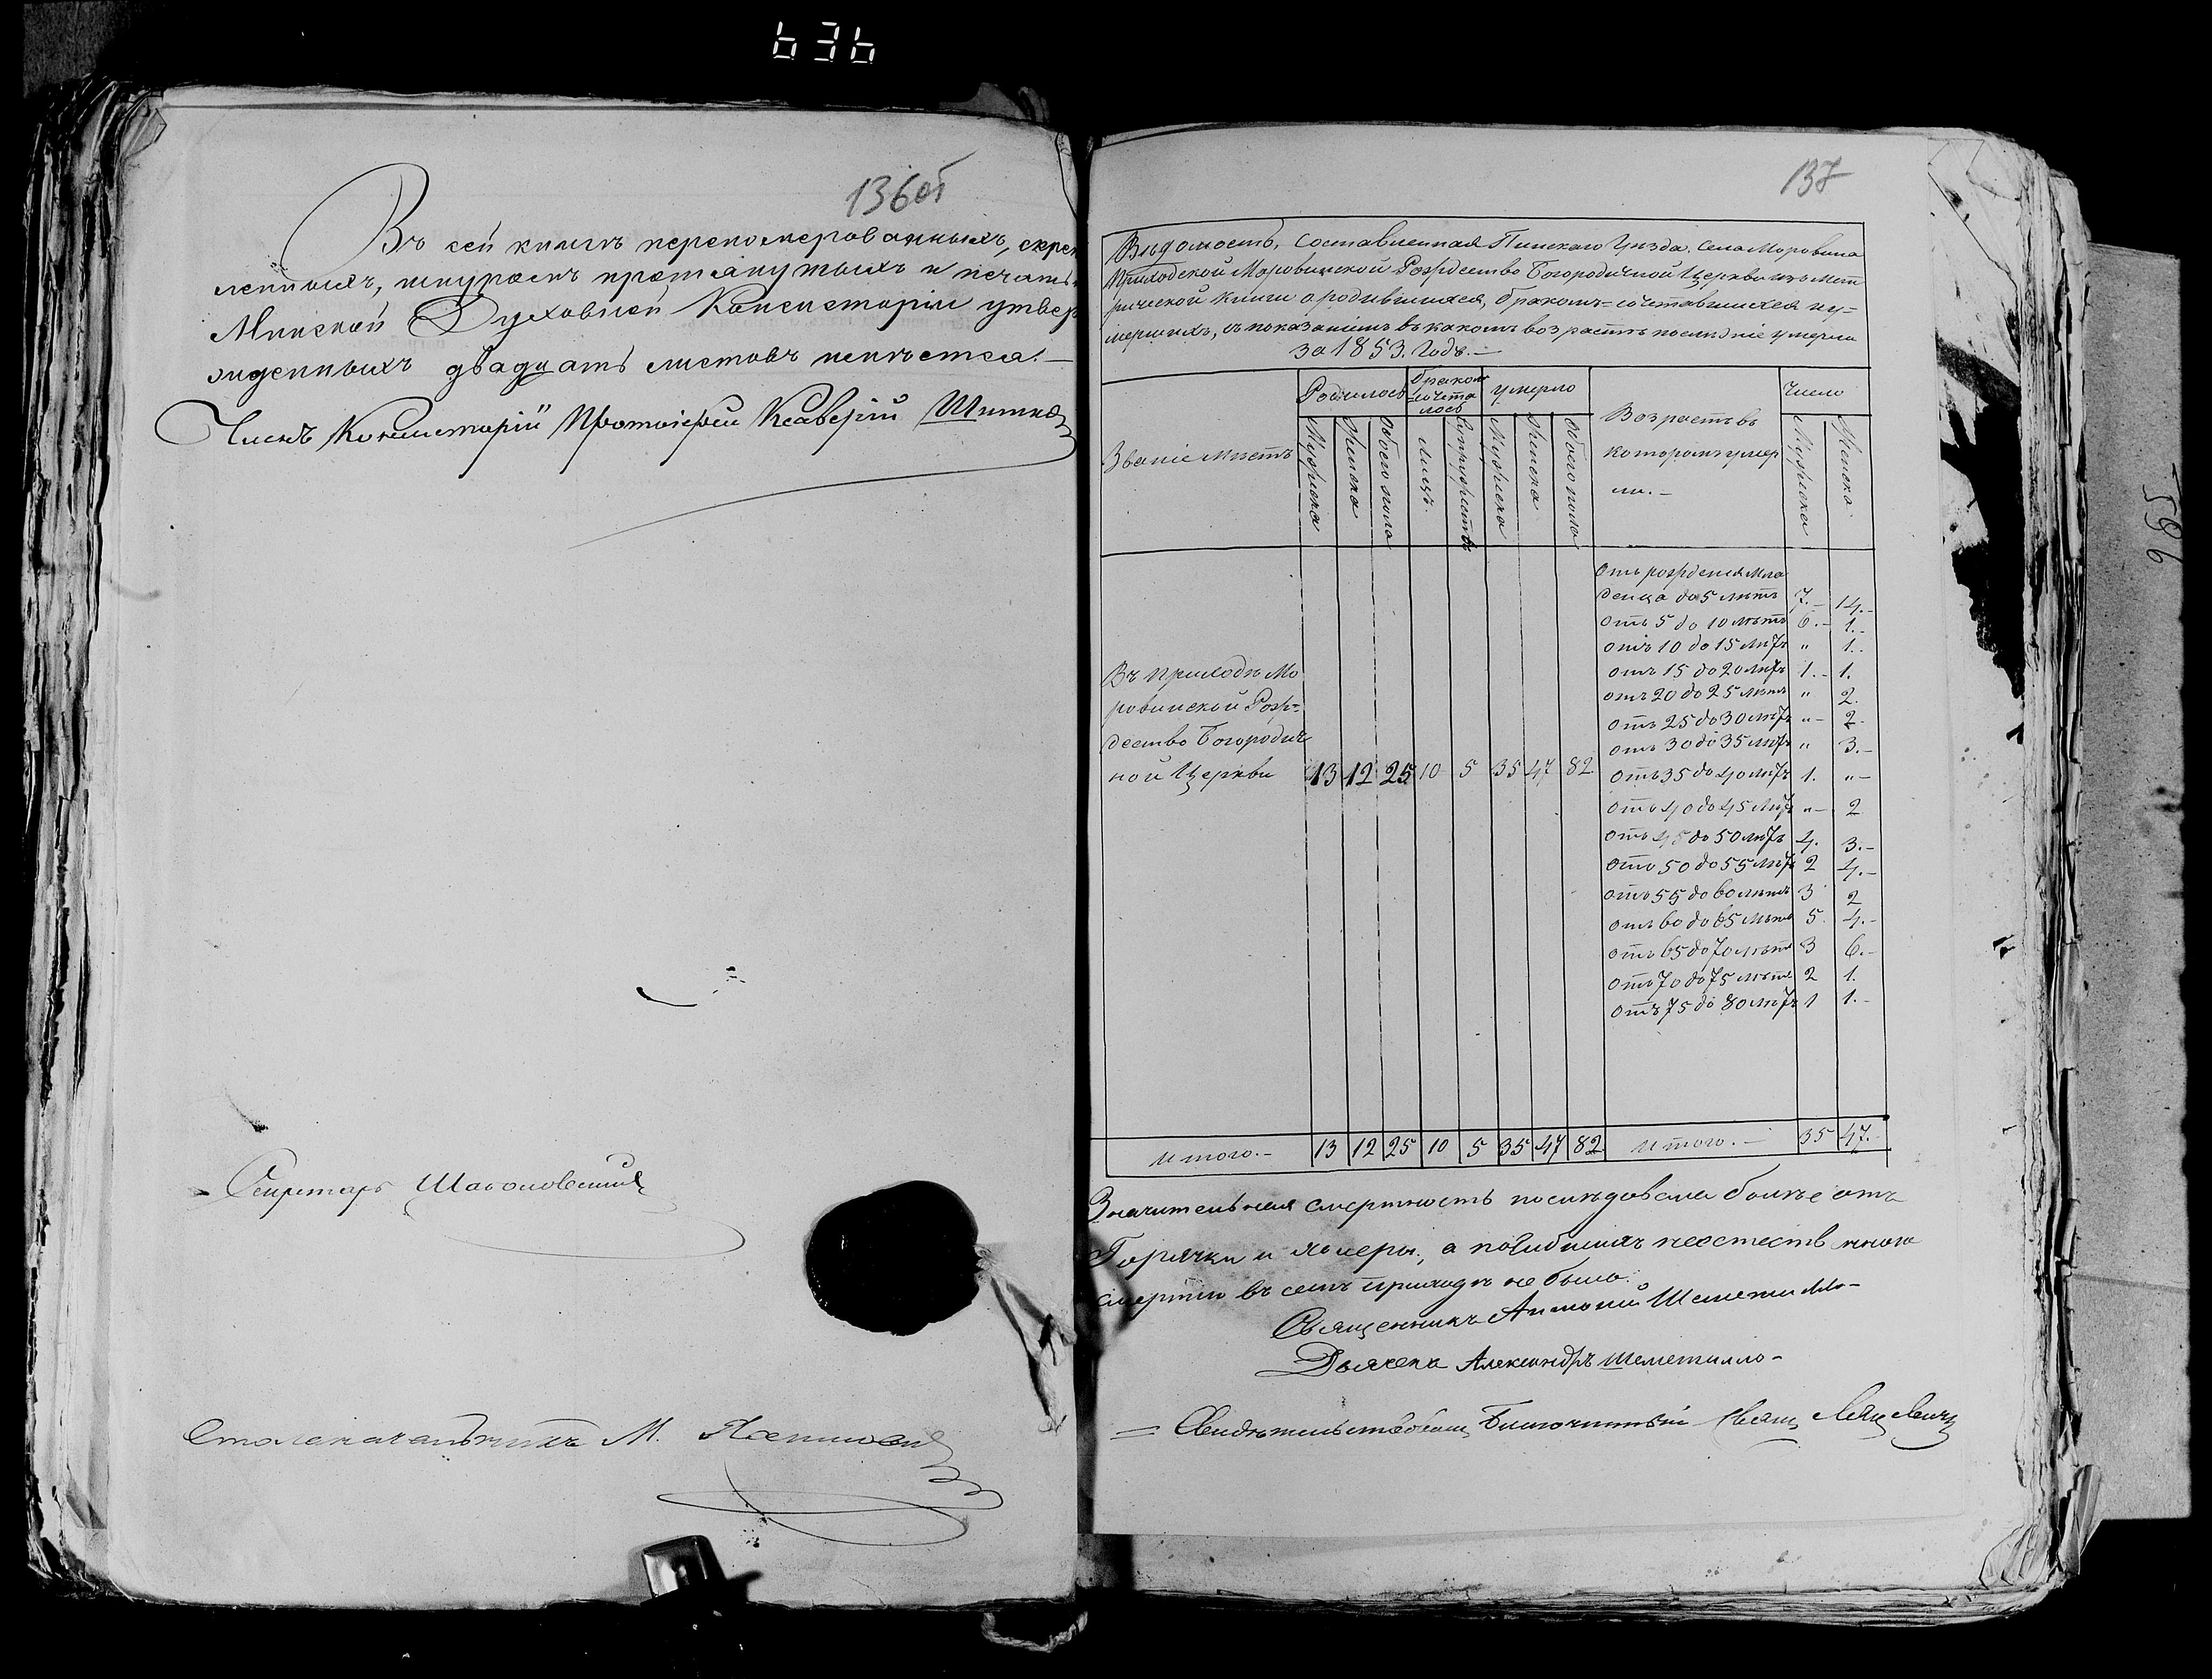 636
136об
Въ сей книгѣ перенумерованныхъ, скрѣ
пленныхъ, шнуромъ протянутыхъ и печатью
Минской Духовной Консисторіи утвер
жденныхъ двадцать листовъ имѣется.
Членъ Консисторіи Протоіерей Ксаверій
Секретарь
Столоначальникъ М.
137
Вѣдомость, составленная Пинскаго Уѣзда. Села Моровина
Приходской Моровинской Рождество Богородичной Церкви изъ Мет
рической книги о родившихся, бракомъ=сочетавшихся и у=
мершихъ, съ показаніемъ въ какомъ возрастѣ послѣдніе умерли
за 1853. Годъ.-
Званіе мѣстъ
Родилось
Бракомъ =сочета лось
Умерло
Возрастъ въ которомъ умер ли.-
Число
Мужеска Женска Обоего пола Лицъ. Супружествъ Мужеска Женска Обоего пола Мужеска Женска
Отъ рожденія Мла
денца до 5 лѣтъ 7.- 14.-
отъ 5 до 10 лѣтъ 6.- 1.-
отъ 10 до 15 лѣтъ " 1.-
отъ 15 до 20 лѣтъ 1.- 1.
отъ 20 до 25 лѣтъ " 2.
отъ 25 до 30 лѣтъ "- 2.-
отъ 30 до 35 лѣтъ " 3.-
Въ Приходѣ Мо
ровинской Рож=
дество Богородич
ной Церкви 13 12 25 10 5 35 47 82 отъ 35 до 40 лѣтъ 1. "-
отъ 40 до 45 лѣтъ "- 2
отъ 45 до 50 лѣтъ 4. 3.-
отъ 50 до 55 лѣтъ 2 4.-
отъ 55 до 60 лѣтъ 3 2
отъ 60 до 65 лѣтъ 5 4.-
отъ 65 до 70 лѣтъ 3 6.-
отъ 70 до 75 лѣтъ 2 1.
отъ 75 до 80 лѣтъ 1 1.-
Итого.- 13 12 25 10 5 35 47 82 Итого.- 35 47.-
Значительная смертность послѣдовала болѣе отъ
Горячки и холеры, а погибшихъ неестественною
смертію въ семъ приходѣ не было.
Священникъ Антоній Шеметилло-
Дьячекъ Александръ Шеметилло-
Свидѣтельствовалъ Благочинный
569